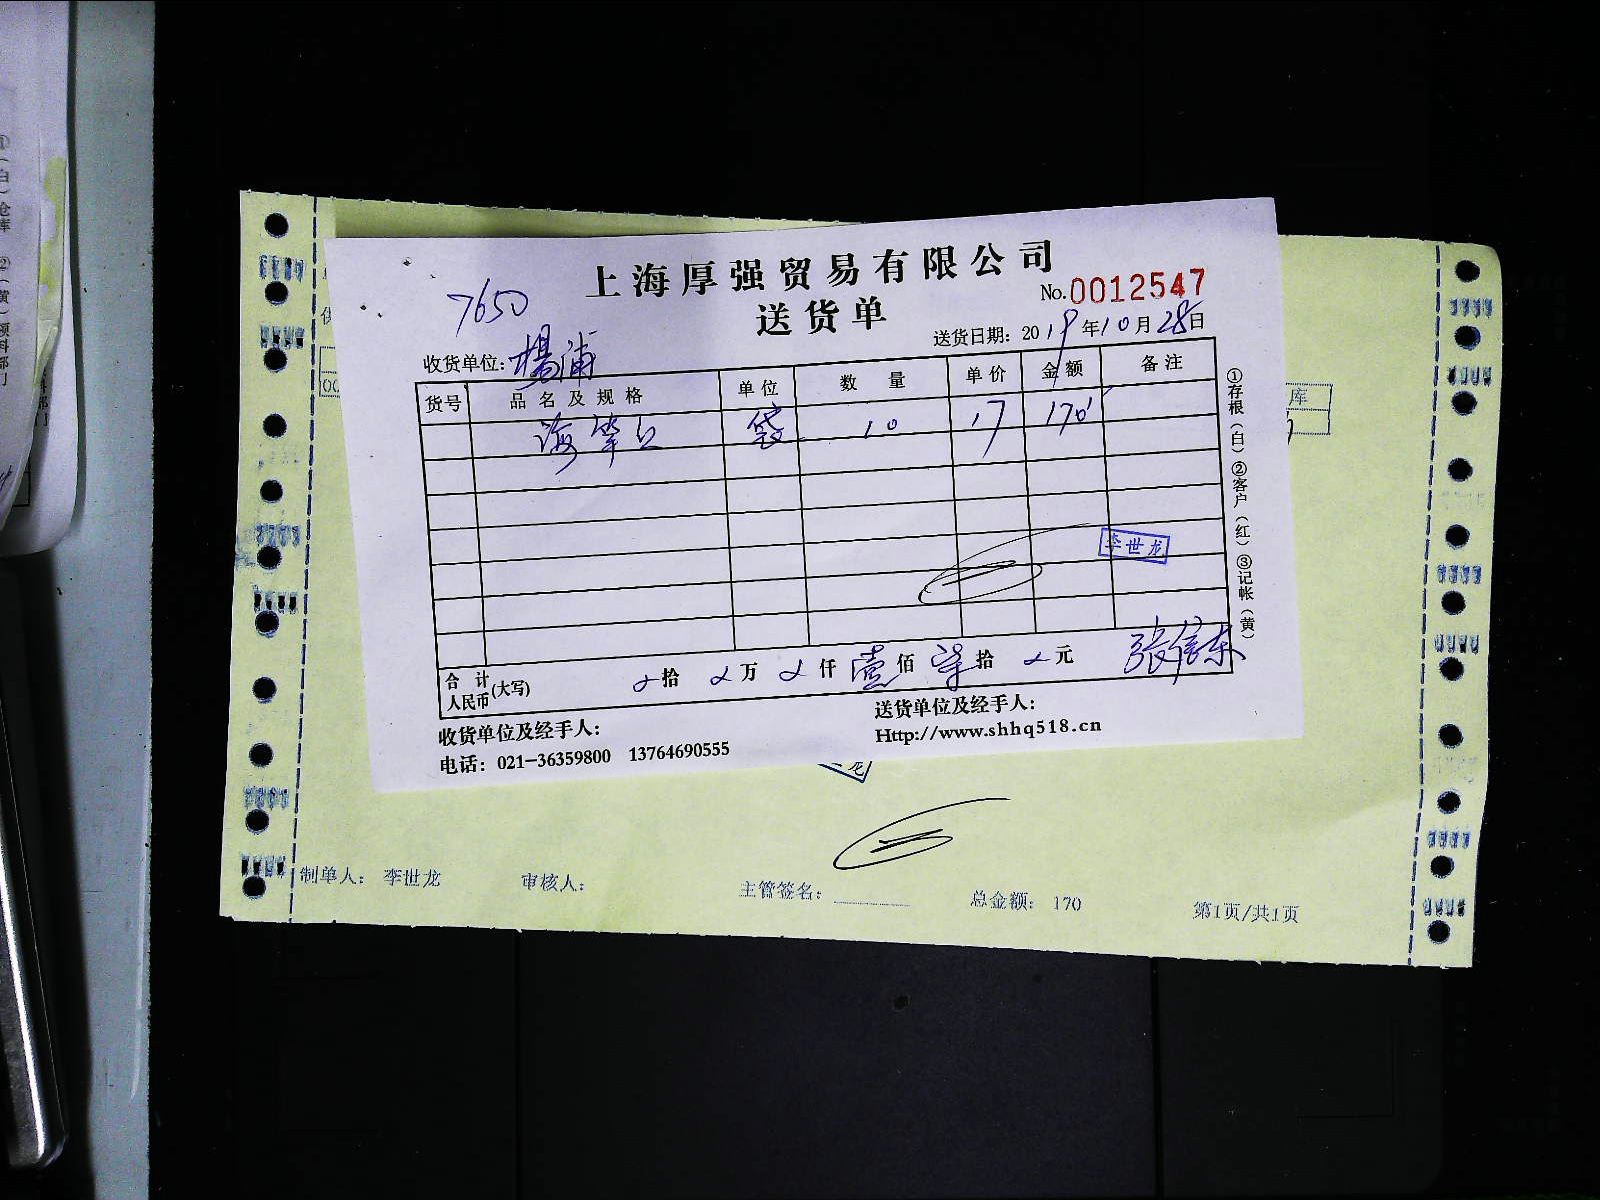 上海厚强贸易有限公司
7650
No.0012547
送货单
送货日期: 2019年10月28日
收货单位: 楊浦
货号 品名及规格 单位 数量 单价 金额 备注
海笋丝 袋 10 17 170
李世龙
合计人民币(大写) 拾 万 仟 壹佰 柒拾 元 张信东
收货单位及经手人:
送货单位及经手人:
电话: 021-36359800 13764690555
Http://www.shhq518.cn
①存根(白)②客户(红)③记帐(黄)
库
制单人: 李世龙 审核人: 主管签名: 总金额: 170 第1页/共1页
①(白)仓库 ②(黄)领料部门